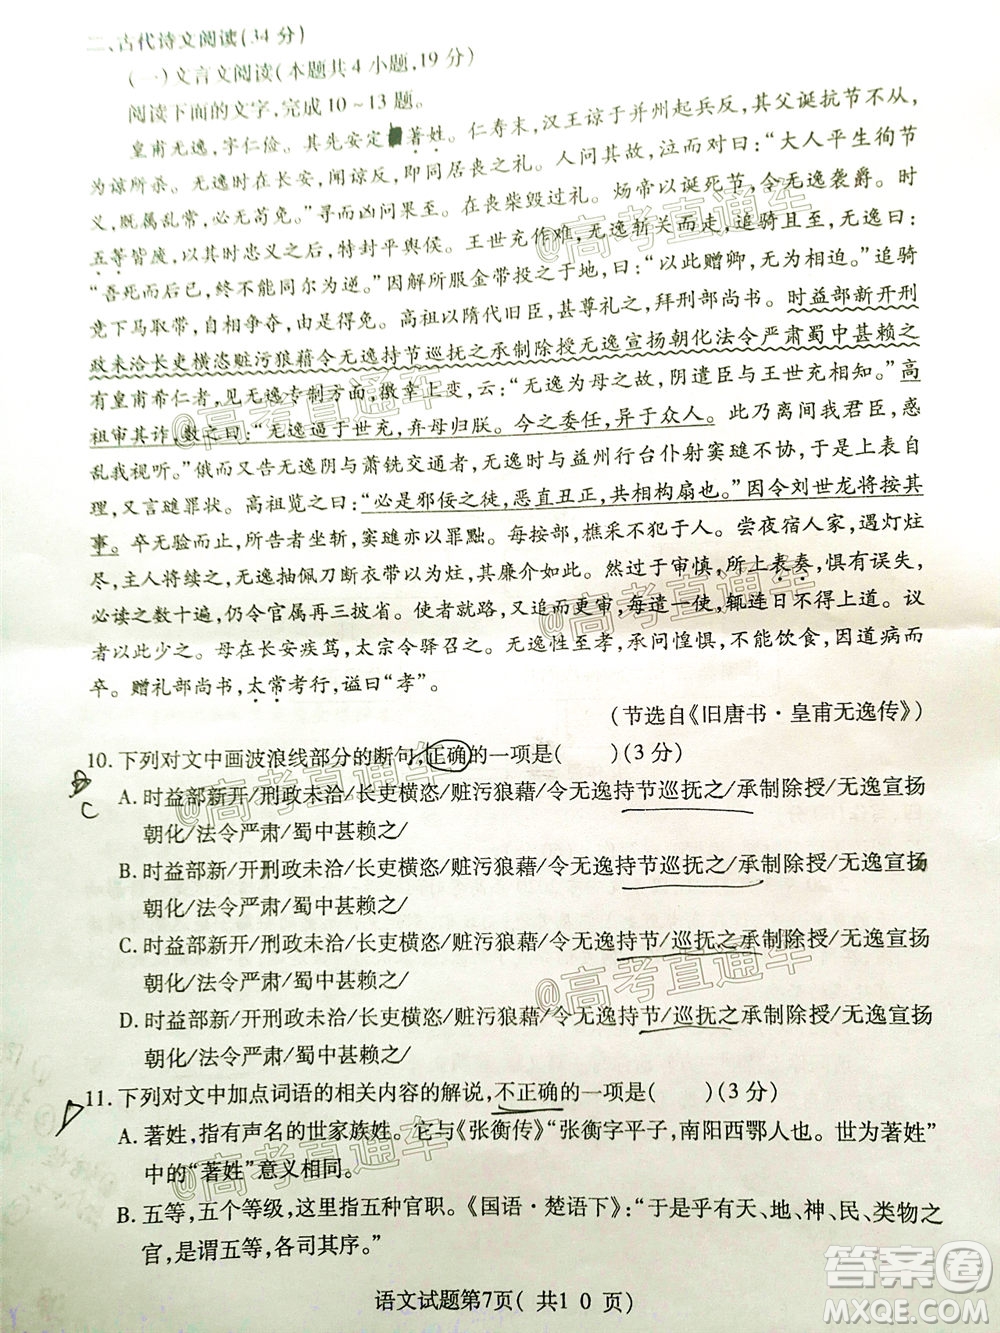 二、古代诗文阅读(34分)
(一)文言文阅读(本题共4小题,19分)
阅读下面的文字,完成10~13题。
皇甫无逸,字仁俭。其先安定著姓。仁寿末,汉王谅于并州起兵反,其父诞抗节不从,
为谅所杀。无逸在长安,闻谅反,即同居丧之礼。人问其故,泣而对曰:“大人平生徇节
义,既属乱常,必无苟免。”寻而凶问果至。在丧柴毁过礼。炀帝以诞死节,令无逸袭爵。时
五等皆废,以其时忠义之后,特封平舆侯。王世充作难,无逸斩关而走,追骑且至,无逸曰:
“吾死而后已,终不能同尔为逆。”因解所服金带投之于地,曰:“以此赠卿,无为相迫。”追骑
竟下马取带,自相争夺,由是得免。高祖以隋代旧臣,甚尊礼之,拜刑部尚书。时益部新开刑
政未洽长吏横恣赃污狼藉令无逸持节巡抚之承制除授无逸宣扬朝化法令严肃蜀中甚赖之
有皇甫希仁者,见无逸专制方面,徼幸上变,云:“无逸为母之故,阴遣臣与王世充相知。”高
祖审其诈,数之曰:“无逸逼于世充,弃母归朕。今之委任,异于众人。此乃离间我君臣,惑
乱我视听。”俄而又告无逸阴与萧铣交通者,无逸时与益州行台仆射窦琎不协,于是上表自
理,又言琎罪状。高祖览之曰:“必是邪佞之徒,恶直丑正,共相构扇也。”因令刘世龙将按其
事。卒无验而止,所告者坐斩,窦琎亦以罪黜。每按部,樵采不犯于人。尝夜宿人家,遇灯炷
尽,主人将续之,无逸抽佩刀断衣带以为炷,其廉介如此。然过于审慎,所上表奏,惧有误失,
必读之数十遍,仍令官属再三披省。使者就路,又追而更审,每遣一使,辄连日不得上道。议
者以此少之。母在长安疾笃,太宗令驿召之。无逸性至孝,承问惶惧,不能饮食,因道病而
卒。赠礼部尚书,太常考行,谥曰“孝”。
(节选自《旧唐书·皇甫无逸传》)
10. 下列对文中画波浪线部分的断句,正确的一项是( )(3分)
C
A. 时益部新开/刑政未洽/长吏横恣/赃污狼藉/令无逸持节巡抚之/承制除授/无逸宣扬
朝化/法令严肃/蜀中甚赖之/
B. 时益部新开/刑政未洽/长吏横恣/赃污狼藉/令无逸持节巡抚/之承制除授/无逸宣扬
朝化/法令严肃/蜀中甚赖之/
C. 时益部新/开刑政未洽/长吏横恣/赃污狼藉/令无逸持节/巡抚之承制除授/无逸宣扬
朝化/法令严肃/蜀中甚赖之/
D. 时益部新/开刑政未洽/长吏横恣/赃污狼藉/令无逸持节/巡抚之/承制除授/无逸宣扬
朝化/法令严肃/蜀中甚赖之/
11. 下列对文中加点词语的相关内容的解说,不正确的一项是( )(3分)
A. 著姓,有声名的世家族姓。它与《张衡传》“张衡字平子,南阳西鄂人也。世为著姓”
中的“著姓”意义相同。
B. 五等,五个等级,这里指五种官职。《国语·楚语下》:“于是乎有天、地、神、民、类物之
官,是谓五等,各司其序。”
语文试题第7页( 共1 0 页)
@高考直通车
@高考直通车
@高考直通车
@高考直通车
@高考直通车
@高考直通车
答案圈
MXQE.COM